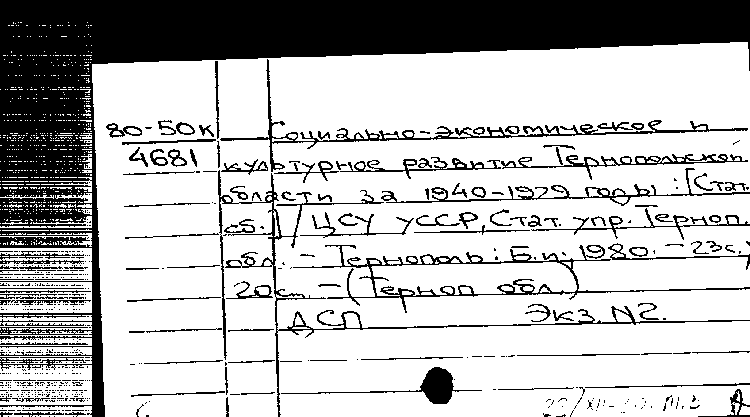 80-50к Социально-экономическое и
4681 культурное развитие Тернопольской
области за 1940-1979 годы : [Стат.
сб.] / ЦСУ УССР, Стат. упр. Терноп.
обл. - Тернополь : Б.и., 1980. - 23с.;
20см. - (Терноп обл.)
ДСП Экз. N2.